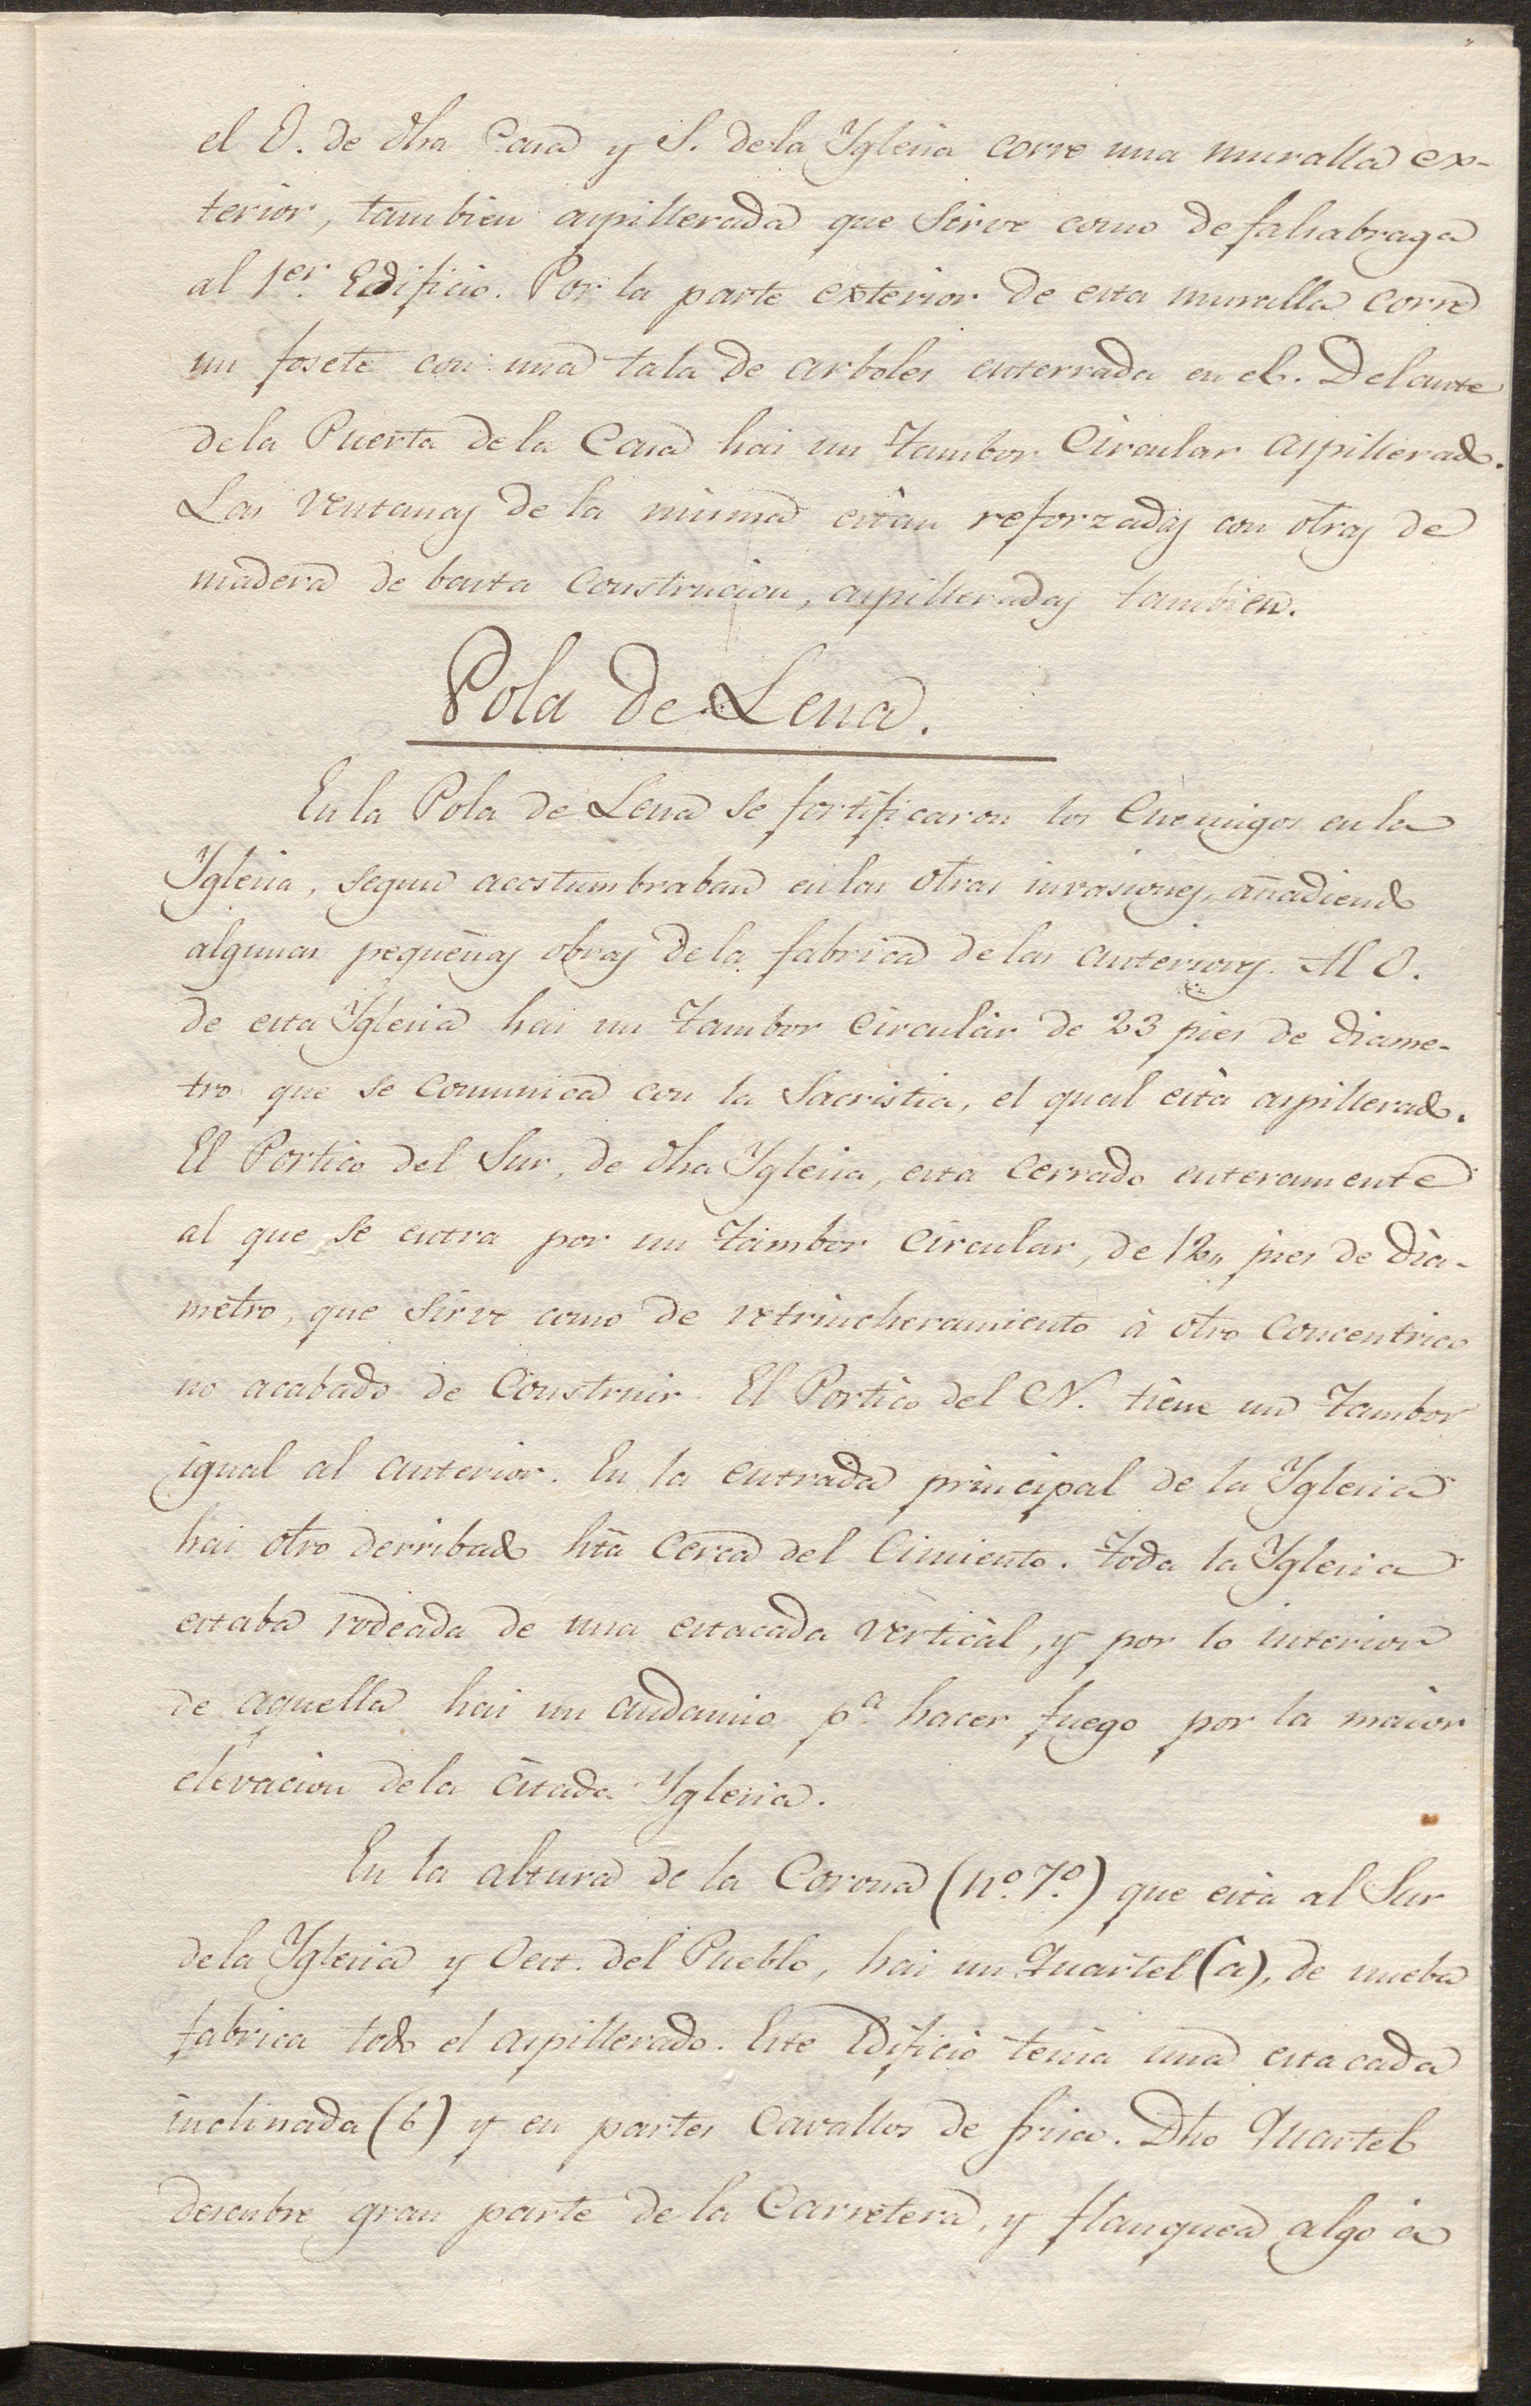 el O. de dha Casa y S. de la Yglesia corre una muralla ex-
terior, tambien aspillerada que sirve como de falsabraga
al 1er. Edificio. Por la parte exterior de esta muralla corre
un fosete con una tala de arboles enterrada en el. Delante
de la Puerta de la Casa hai un Tambor Circular aspillerado.
Las ventanas de la misma están reforzadas con otras de
madera de basta Construcion, aspilleradas tambien.
Pola de Lena.
En la Pola de Lena se fortificaron los Enemigos en la
Yglesia, segun acostumbraban en las otras invasiones, añadiendo
algunas pequeñas obras de la fabrica de las anteriores. Al O.
de esta Yglesia hai un Tambor Circular de 23 pies de diame-
tro que se Comunica con la Sacristia, el qual està aspillerado.
El Portico del Sur, de dha Yglesia, esta Cerrado enteramente
al que se entra por un Tambor Circular, de 12,, pies de dia-
metro, que sirve como de retrincheramiento à otro Concentrico
no acabado de Construir. El Portico del N. tiene un Tambor
igual al anterior. En la entrada principal de la Yglesia
hai otro derribado hta Cerca del Cimiento. Toda la Yglesia
estaba rodeada de una estacada vertical, y por lo interior
de aquella hai un andamio pa. hacer fuego por la maior
elevacion de la citada Yglesia.
En la altura de la Corona (no. 7o.) que està al Sur
de la Yglesia y Oest. del Pueblo, hai un Quartel (a), de nueba
fabrica todo el aspillerado. Este Edificio tenia una estacada
inclinada (b) y en partes Cavallos de frisa. Dho Quartel
descubre gran parte de la Carretera, y flanquea algo à